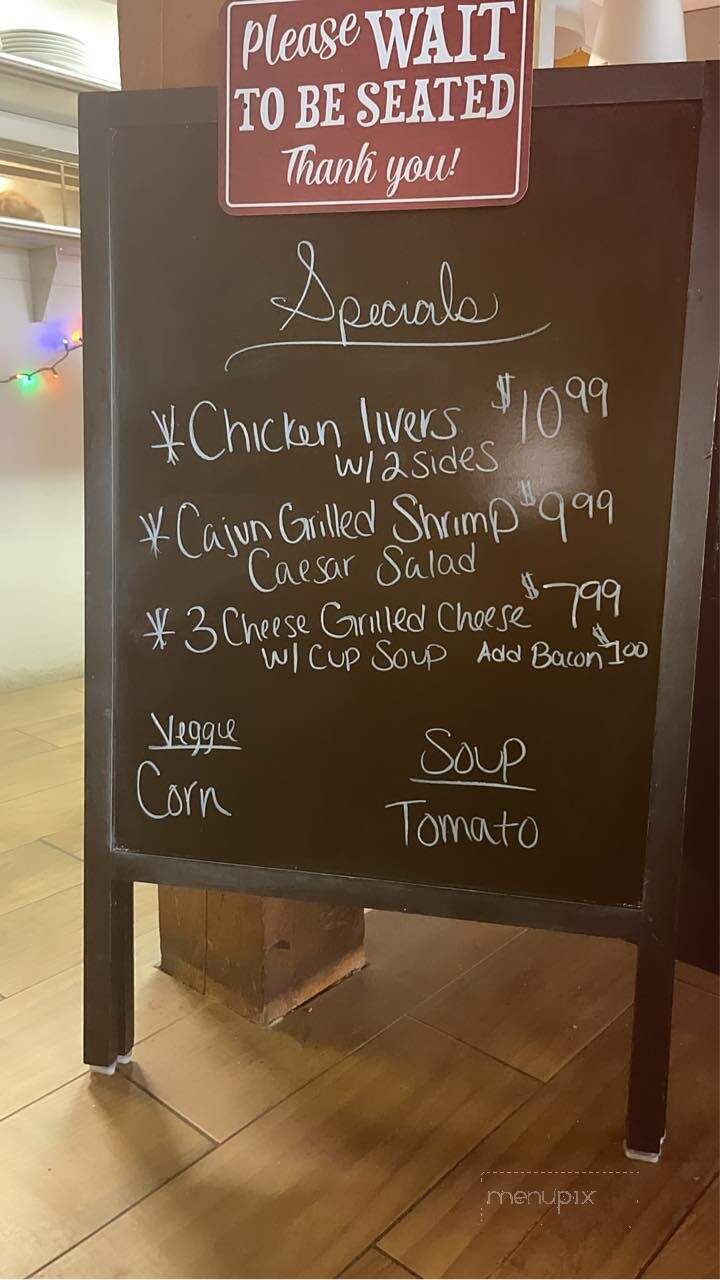 Please WAIT
TO BE SEATED
Thank you!
Specials
* Chicken livers $10.99
w/ 2 sides
* Cajun Grilled Shrimp $9.99
Caesar Salad
* 3 Cheese Grilled Cheese $7.99
w/ Cup Soup Add Bacon $1.00
Veggie
Corn
Soup
Tomato
menupix